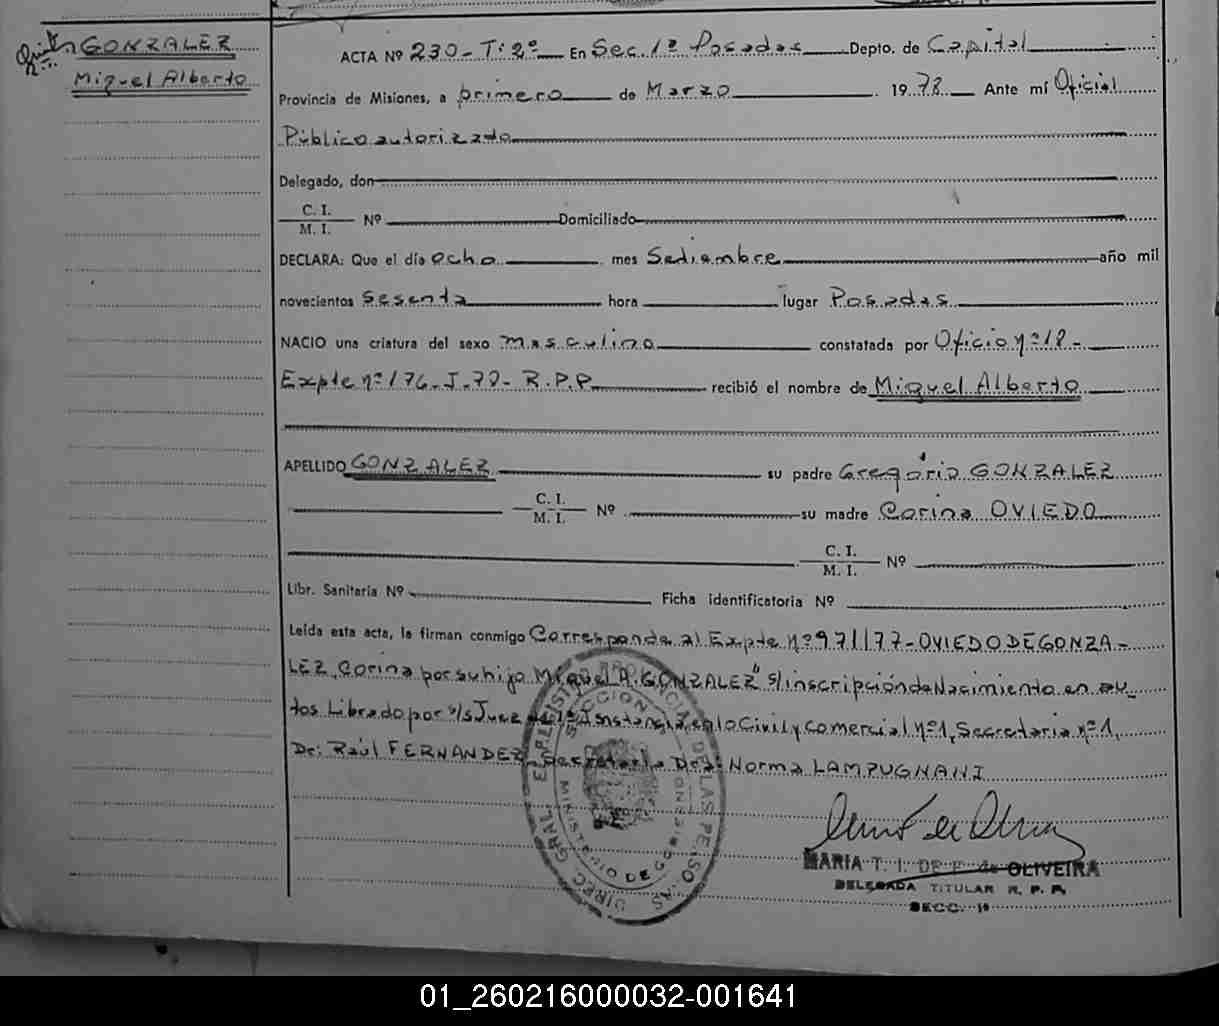 GONZALEZ
Miguel Alberto
ACTA Nº 230 - T: 2º En Sec. 1ª Posadas Depto. de Capital
Provincia de Misiones, a primero de Marzo 1978 Ante mí Oficial
Público autorizado
Delegado, don
C. I.
M. I. Nº Domiciliado
DECLARA: Que el día ocho mes Setiembre año mil
novecientos sesenta hora lugar Posadas
NACIO una criatura del sexo masculino constatada por Oficio nº 18 -
Expte nº 176 - J - 78 - R.P.P. recibió el nombre de Miguel Alberto
APELLIDO GONZALEZ su padre Gregório GONZALEZ
C. I.
M. I. Nº su madre Corina OVIEDO
C. I.
M. I. Nº
Libr. Sanitaria Nº Ficha identificatoria Nº
Leída esta acta, la firman conmigo Corresponde al Expte nº 971/77 - OVIEDO DE GONZA -
LEZ, Corina por su hijo Miguel A. GONZALEZ" s/inscripción de Nacimiento en au_
tos Librado por s/s Juez de 1ª Instancia en lo Civil y comercial nº 1, Secretaria nº 1,
Dr: Raúl FERNANDEZ, Secretaria Dra: Norma LAMPUGNANI
DIREC. GRAL. PROVINCIAL DE LAS PERSONAS
MINISTERIO DE GOBIERNO
SECCION
MARIA T. I. DE F. de OLIVEIRA
DELEGADA TITULAR R. P. P.
SECC. 1ª
01_260216000032-001641